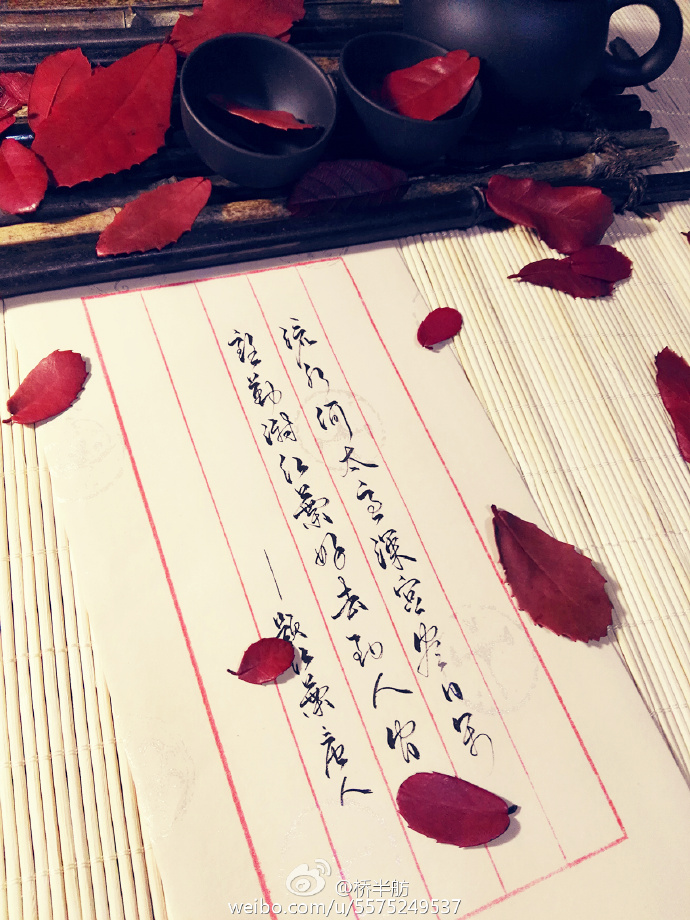 流水何太急深宫尽日闲
殷勤谢红葉好去到人间
——题红葉唐人
@桥半舫
weibo.com/u/5575249537